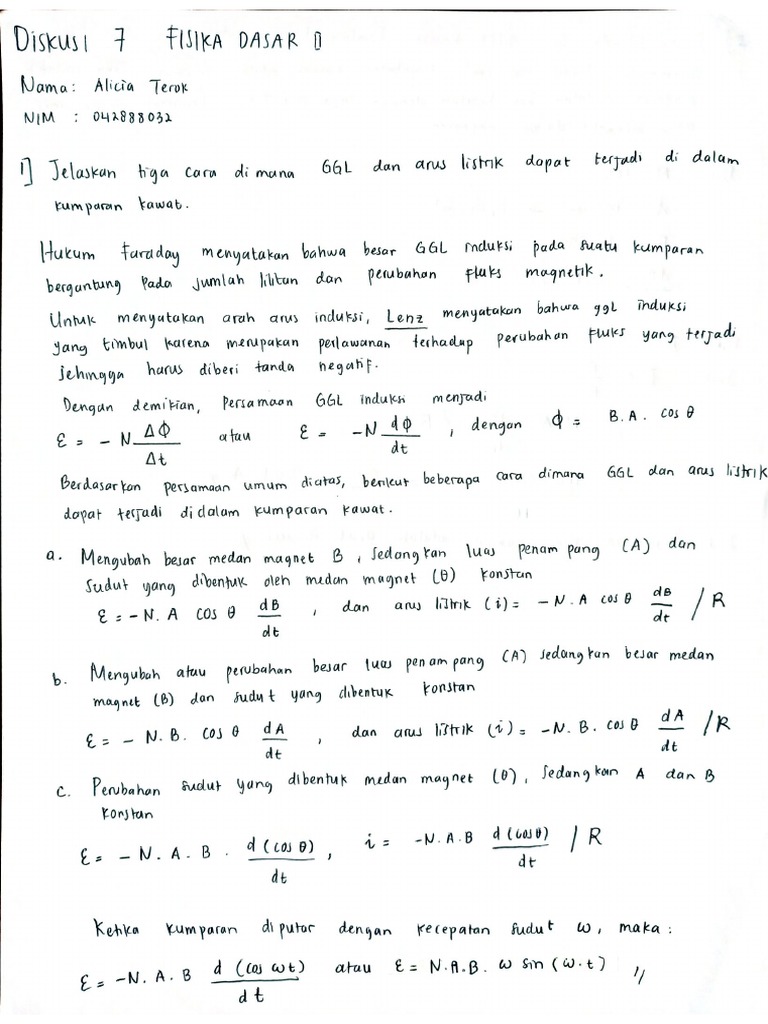 Diskusi 7 FISIKA DASAR II
Nama: Alicia Terok
NIM : 042888032
1] Jelaskan tiga cara dimana GGL dan arus listrik dapat terjadi di dalam
kumparan kawat.
Hukum Faraday menyatakan bahwa besar GGL induksi pada suatu kumparan
bergantung pada jumlah lilitan dan perubahan fluks magnetik.
Untuk menyatakan arah arus induksi, Lenz menyatakan bahwa ggl induksi
yang timbul karena merupakan perlawanan terhadap perubahan fluks yang terjadi
sehingga harus diberi tanda negatif.
Dengan demikian, persamaan GGL induksi menjadi
ε = - N ΔΦ/Δt atau ε = -N dΦ/dt , dengan Φ = B.A. cos θ
Berdasarkan persamaan umum diatas, berikut beberapa cara dimana GGL dan arus listrik
dapat terjadi didalam kumparan kawat.
a. Mengubah besar medan magnet B, sedangkan luas penampang (A) dan
sudut yang dibentuk oleh medan magnet (θ) konstan
ε = -N. A cos θ dB/dt , dan arus listrik (i) = -N.A cos θ dB/dt / R
b. Mengubah atau perubahan besar luas penampang (A) sedangkan besar medan
magnet (B) dan sudut yang dibentuk konstan
ε = - N. B. cos θ dA/dt , dan arus listrik (i) = -N. B. cos θ dA/dt / R
c. Perubahan sudut yang dibentuk medan magnet (θ), sedangkan A dan B
konstan
ε = - N. A. B . d(cos θ)/dt , i = -N.A.B d(cosθ)/dt / R
Ketika kumparan diputar dengan kecepatan sudut ω, maka :
ε = -N. A. B d (cos ωt)/dt atau ε = N.A.B. ω sin (ω.t) //